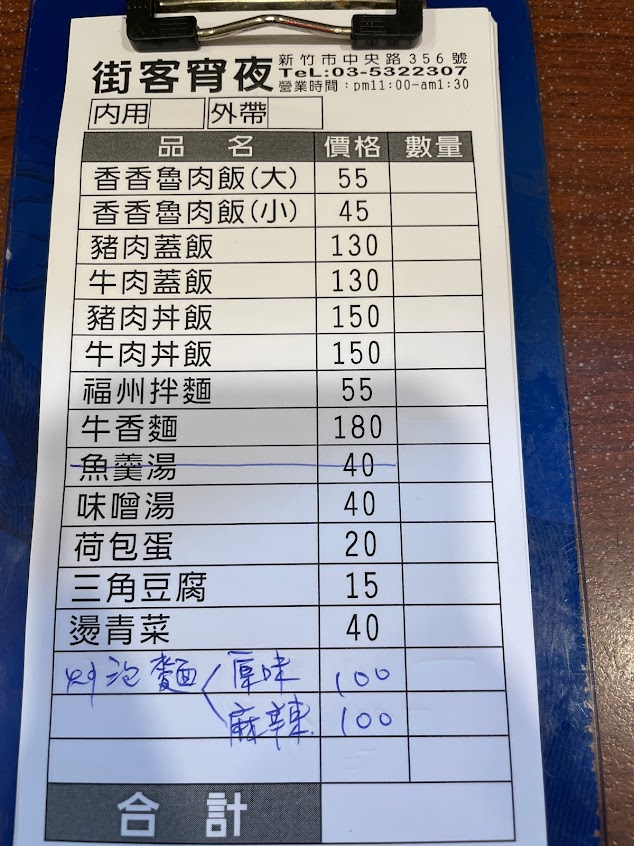 街客宵夜
新竹市中央路356號
TeL:03-5322307
營業時間:pm11:00-am1:30
內用 外帶
品 名 價格 數量
香香魯肉飯(大) 55
香香魯肉飯(小) 45
豬肉蓋飯 130
牛肉蓋飯 130
豬肉丼飯 150
牛肉丼飯 150
福州拌麵 55
牛香麵 180
魚羹湯 40
味噌湯 40
荷包蛋 20
三角豆腐 15
燙青菜 40
炒泡麵 原味 100
麻辣 100
合 計